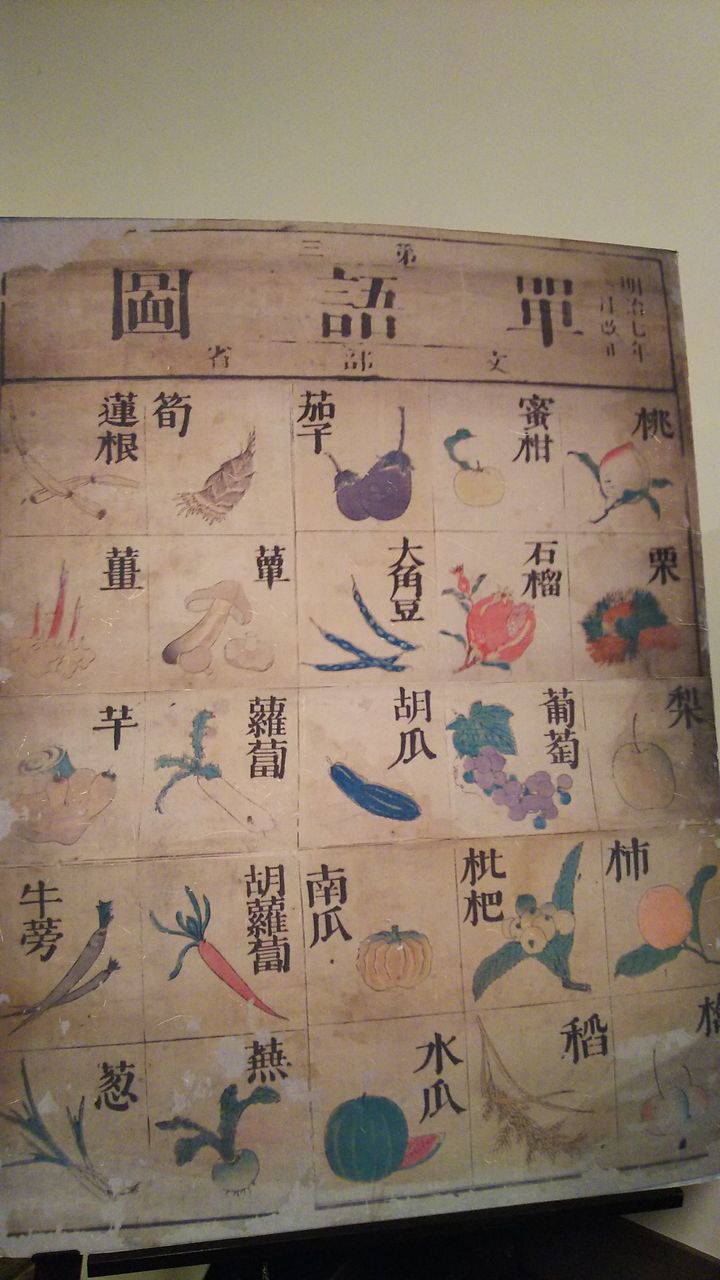 第三
單語圖
文部省
明治七年
月改正
桃
栗
梨
柿
蜜柑
石榴
葡萄
枇杷
稻
茄子
大角豆
胡瓜
南瓜
水瓜
筍
蕈
蘿蔔
胡蘿蔔
蕪
蓮根
薑
芋
牛蒡
葱